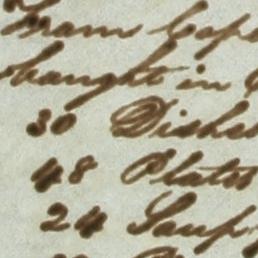 from Cape
bought in
30 Dishes
48 Plates
24 Soup